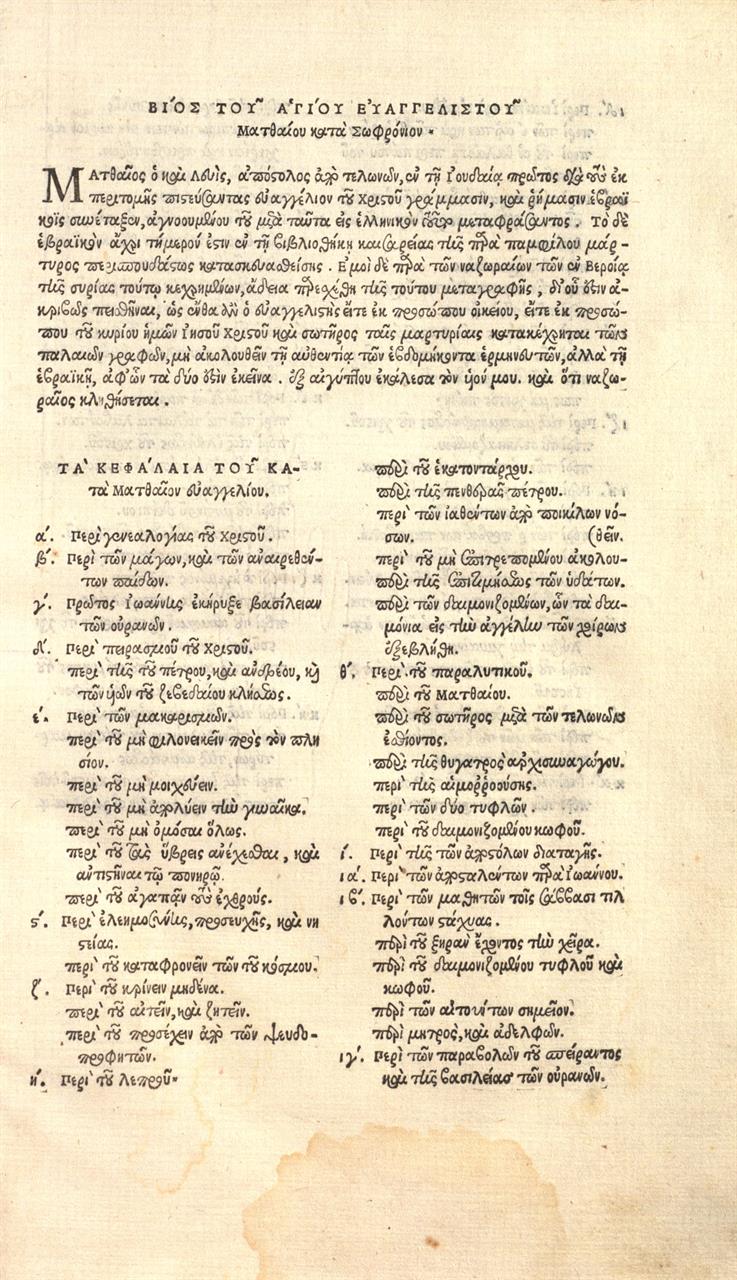 ΒΙΟΣ ΤΟΥ ΑΓΙΟΥ ΕΥΑΓΓΕΛΙΣΤΟΥ
Ματθαίου κατὰ Σωφρόνιον.
ΜΑτθαῖος ὁ καὶ Λευὶς, ἀπόστολος ἀπὸ τελωνῶν, ἐν τῇ Ἰουδαίᾳ πρῶτος διὰ τοὺς ἐκ
περιτομῆς πιστεύσαντας εὐαγγέλιον τοῦ Χριστοῦ γράμμασιν, καὶ ῥήμασιν ἑβραϊ
κοῖς συνέταξεν, ἀγνοουμένου τοῦ μετὰ ταῦτα εἰς ἑλληνικὸν τοῦτο μεταφράσαντος. Τὸ δὲ
ἑβραϊκὸν ἄχρι τήμερον ἐστὶν ἐν τῇ βιβλιοθήκῃ καισαρείας τῆς παρὰ παμφίλου μάρ-
τυρος περισπουδάστως κατασκευασθείσης. Ἐμοὶ δὲ παρὰ τῶν ναζωραίων τῶν ἐν Βεροίᾳ
τῆς συρίας τούτῳ κεχρημένων, ἄδεια παρεχέθη τῆς τούτου μεταγραφῆς, δι' οὗ ἔστιν ἀ-
κριβῶς πεισθῆναι, ὡς ἔνθα δἂν ὁ εὐαγγελιστὴς εἴτε ἐκ προσώπου οἰκείου, εἴτε ἐκ προσώ-
που τοῦ κυρίου ἡμῶν Ἰησοῦ Χριστοῦ καὶ σωτῆρος ταῖς μαρτυρίαις κατακέχρηται τῶν
παλαιῶν γραφῶν, μὴ ἀκολουθεῖν τῇ αὐθεντίᾳ τῶν ἑβδομήκοντα ἑρμηνευτῶν, ἀλλὰ τῇ
ἑβραϊκῇ, ἀφ' ὧν τὰ δύο ἔστιν ἐκεῖνα. ἐξ αἰγύπτου ἐκάλεσα τὸν ὑόν μου. καὶ ὅτι ναζω-
ραῖος κληθήσεται.
ΤΑ ΚΕΦΑΛΑΙΑ ΤΟΥ ΚΑ-
τὰ Ματθαῖον εὐαγγελίου.
α΄. Περὶ γενεαλογίας τοῦ Χριστοῦ.
β΄. Περὶ τῶν μάγων, καὶ τῶν ἀναιρεθέν-
των παίδων.
γ΄. Πρῶτος Ἰωάννης ἐκήρυξε βασίλειαν
τῶν οὐρανῶν.
δ΄. Περὶ πειρασμοῦ τοῦ Χριστοῦ.
περὶ τῆς τοῦ πέτρου, καὶ ἀνδρέου, καὶ
τῶν ὑῶν τοῦ ζεβεδαίου κλήσεως.
ε΄. Περὶ τῶν μακαρισμῶν.
περὶ τοῦ μὴ φιλονεικεῖν πρὸς τὸν πλη
σίον.
περὶ τοῦ μὴ μοιχεύειν.
περὶ τοῦ μὴ ἀπολύειν τὴν γυναῖκα.
περὶ τοῦ μὴ ὀμόσαι ὅλως.
περὶ τοῦ τὰς ὕβρεις ἀνέχεσθαι, καὶ
ἀντιστῆναι τῷ πονηρῷ.
περὶ τοῦ ἀγαπᾶν τοὺς ἐχθρούς.
ς΄. Περὶ ἐλεημοσύνης, προσευχῆς, καὶ νη
στείας.
περὶ τοῦ καταφρονεῖν τῶν τοῦ κόσμου.
ζ΄. Περὶ τοῦ κρίνειν μηδένα.
περὶ τοῦ αἰτεῖν, καὶ ζητεῖν.
περὶ τοῦ προσέχειν ἀπὸ τῶν ψευδο-
προφητῶν.
η΄. Περὶ τοῦ λεπροῦ.
περὶ τοῦ ἑκατοντάρχου.
περὶ τῆς πενθερᾶς πέτρου.
περὶ τῶν ἰαθέντων ἀπὸ ποικίλων νό-
σων. (θεῖν.
περὶ τοῦ μὴ ἐπιτρεπομένου ἀκολου-
περὶ τῆς ἐπιτιμήσεως τῶν ὑδάτων.
περὶ τῶν δαιμονιζομένων, ὧν τὰ δαι-
μόνια εἰς τὴν ἀγέλην τῶν χοίρων
ἐξεβλήθη.
θ΄. Περὶ τοῦ παραλυτικοῦ.
περὶ τοῦ Ματθαίου.
περὶ τοῦ σωτῆρος μετὰ τῶν τελωνῶν
ἐσθίοντος.
περὶ τῆς θυγατρὸς ἀρχισυναγώγου.
περὶ τῆς αἱμορροούσης.
περὶ τῶν δύο τυφλῶν.
περὶ τοῦ δαιμονιζομένου κωφοῦ.
ι΄. Περὶ τῆς τῶν ἀποστόλων διαταγῆς.
ια΄. Περὶ τῶν ἀποσταλέντων παρὰ Ἰωάννου.
ιβ΄. Περὶ τῶν μαθητῶν τοῖς σάββασι τιλ
λόντων στάχυας.
περὶ τοῦ ξηρὰν ἔχοντος τὴν χεῖρα.
περὶ τοῦ δαιμονιζομένου τυφλοῦ καὶ
κωφοῦ.
περὶ τῶν αἰτούντων σημεῖον.
περὶ μητρὸς, καὶ ἀδελφῶν.
ιγ΄. Περὶ τῶν παραβολῶν τοῦ σπείραντος
καὶ τῆς βασιλείας τῶν οὐρανῶν.